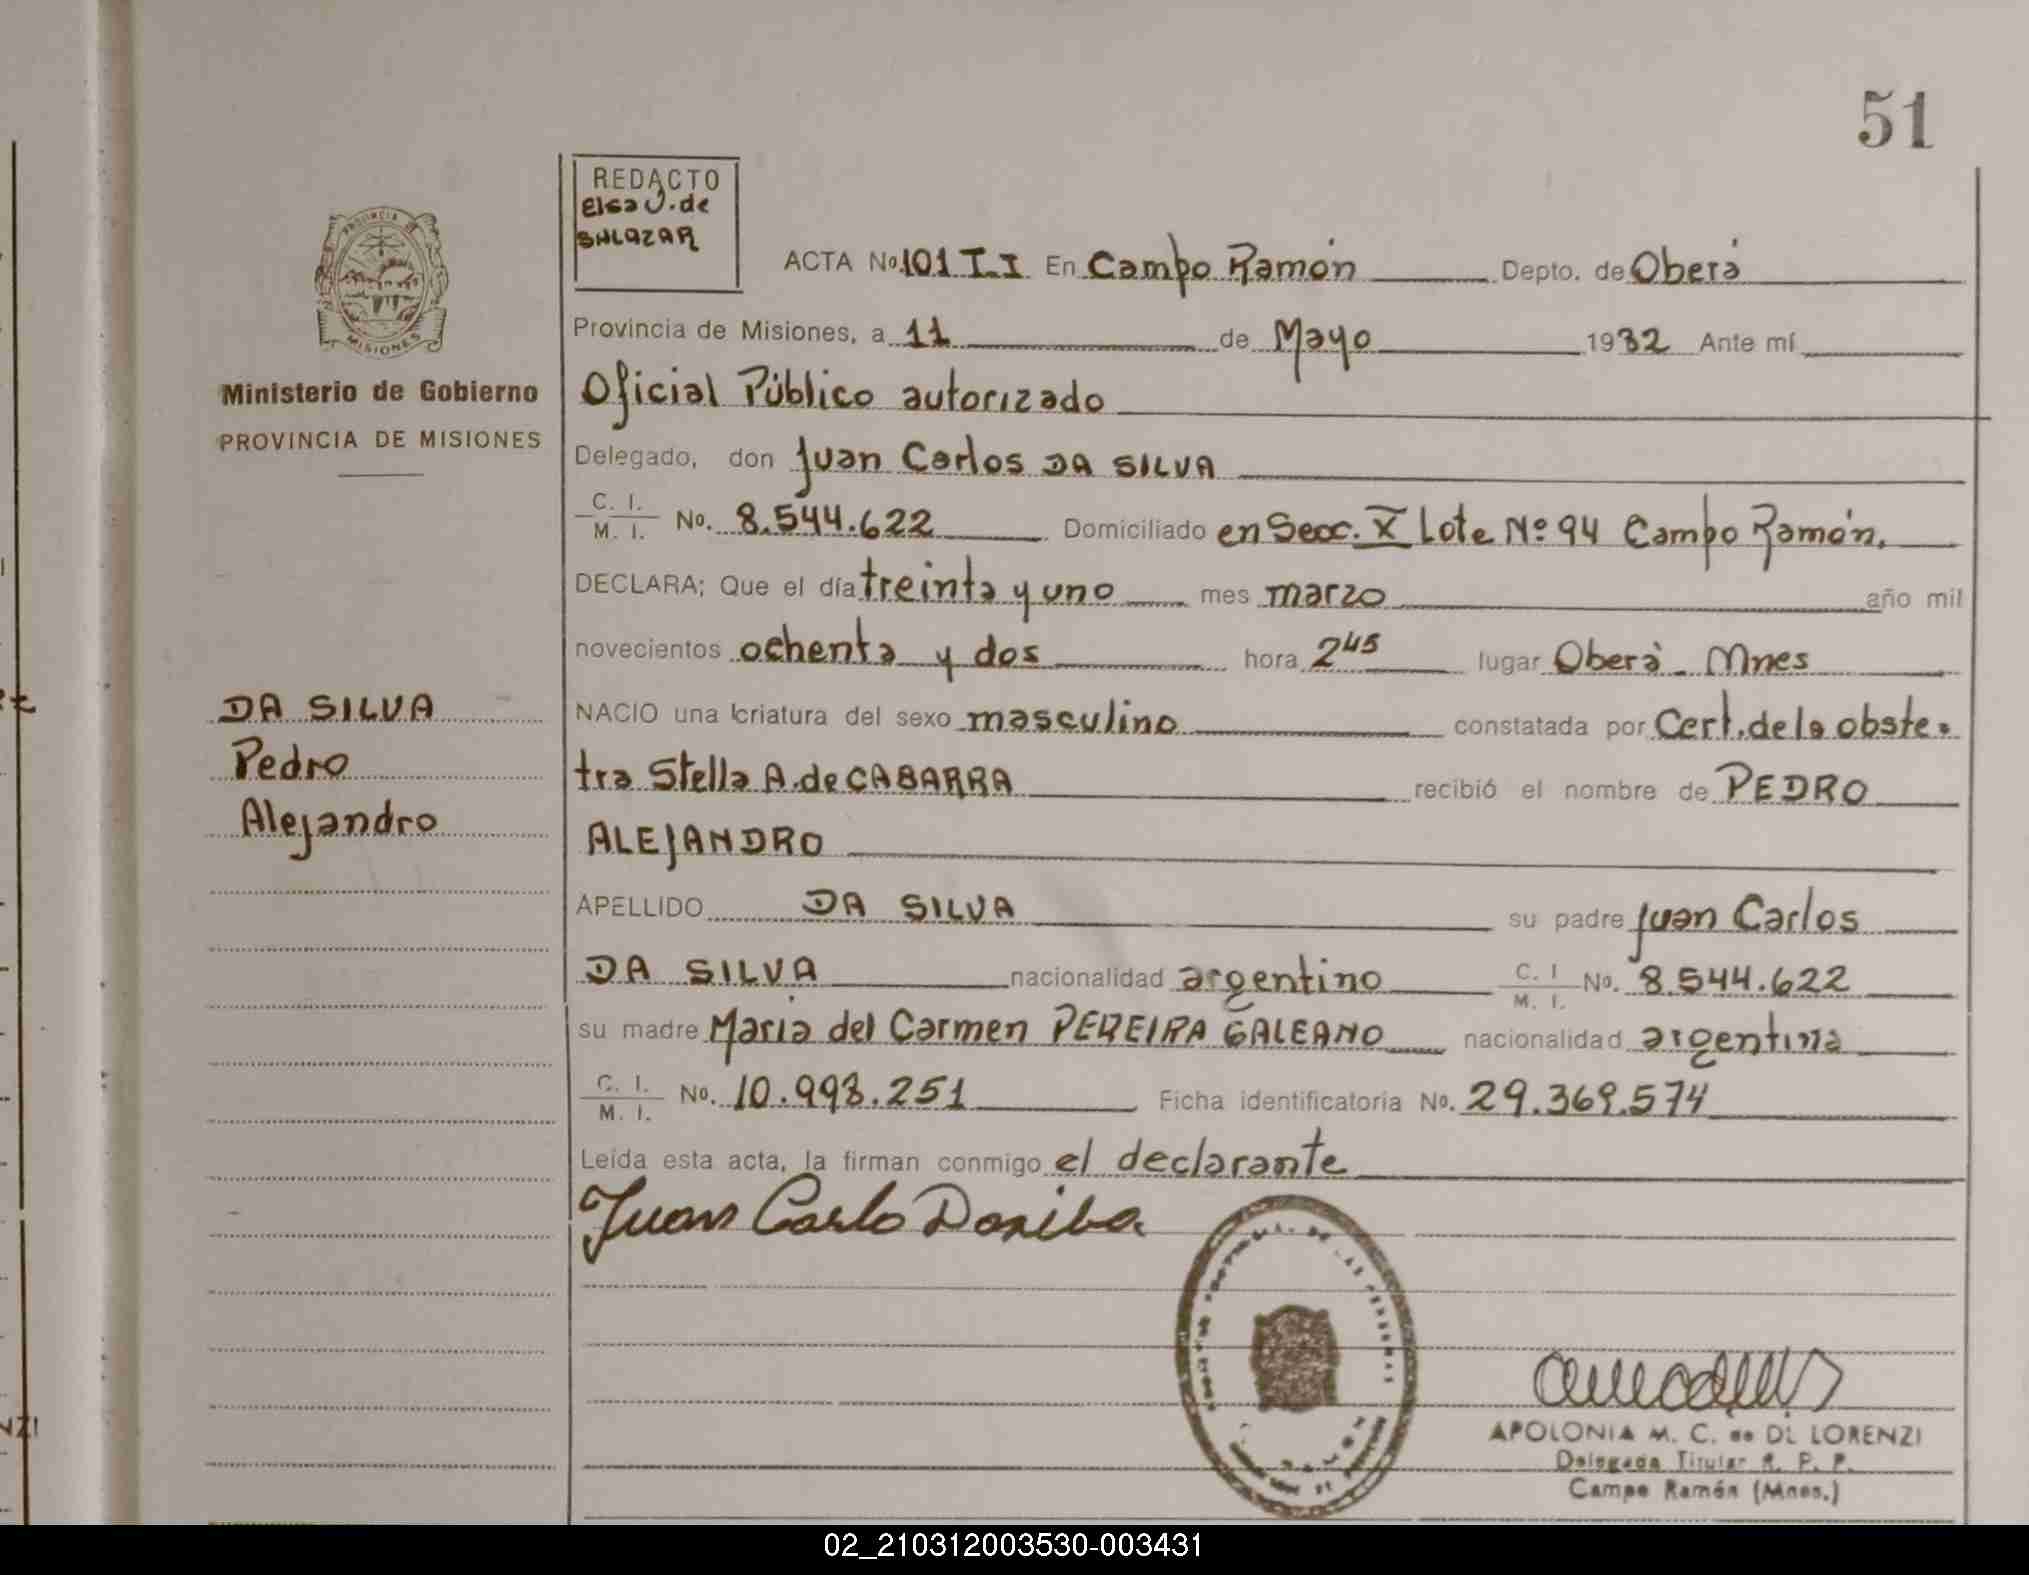 51
REDACTO
Elsa J. de
SALAZAR
PROVINCIA
MISIONES
Ministerio de Gobierno
PROVINCIA DE MISIONES
ACTA No. 101 T.I En Campo Ramón Depto. de Oberá
Provincia de Misiones, a 11 de Mayo 1982 Ante mí
Oficial Público autorizado
Delegado, don Juan Carlos DA SILVA
C. I. / M. I. No. 8.544.622 Domiciliado en Secc. X Lote Nº 94 Campo Ramón.
DECLARA; Que el día treinta y uno mes marzo año mil
novecientos ochenta y dos hora 2 45 lugar Oberá - Mnes
DA SILVA
Pedro
Alejandro
NACIO una criatura del sexo masculino constatada por Cert. de la obste-
tra Stella A. de CABARRA recibió el nombre de PEDRO
ALEJANDRO
APELLIDO DA SILVA su padre Juan Carlos
DA SILVA nacionalidad argentino C. I / M. I. No. 8.544.622
su madre María del Carmen PEREIRA GALEANO nacionalidad argentina
C. I. / M. I. No. 10.998.251 Ficha identificatoria No. 29.369.574
Leída esta acta, la firman conmigo el declarante
Juan Carlo Dasilba
DE LAS PERSONAS
APOLONIA M. C. de DI LORENZI
Delegada Titular R. P. P.
Campo Ramón (Mnes.)
NZI
02_210312003530-003431